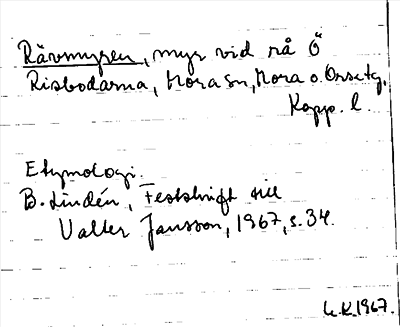 Rävmyren, myr vid rå Ö
Risbodarna, Mora sn, Mora o. Orsa tg,
Kopp. l.
Etymologi.
B. Lindén, Festskrift till
Valter Jansson, 1967, s. 34.
L.K. 1967.